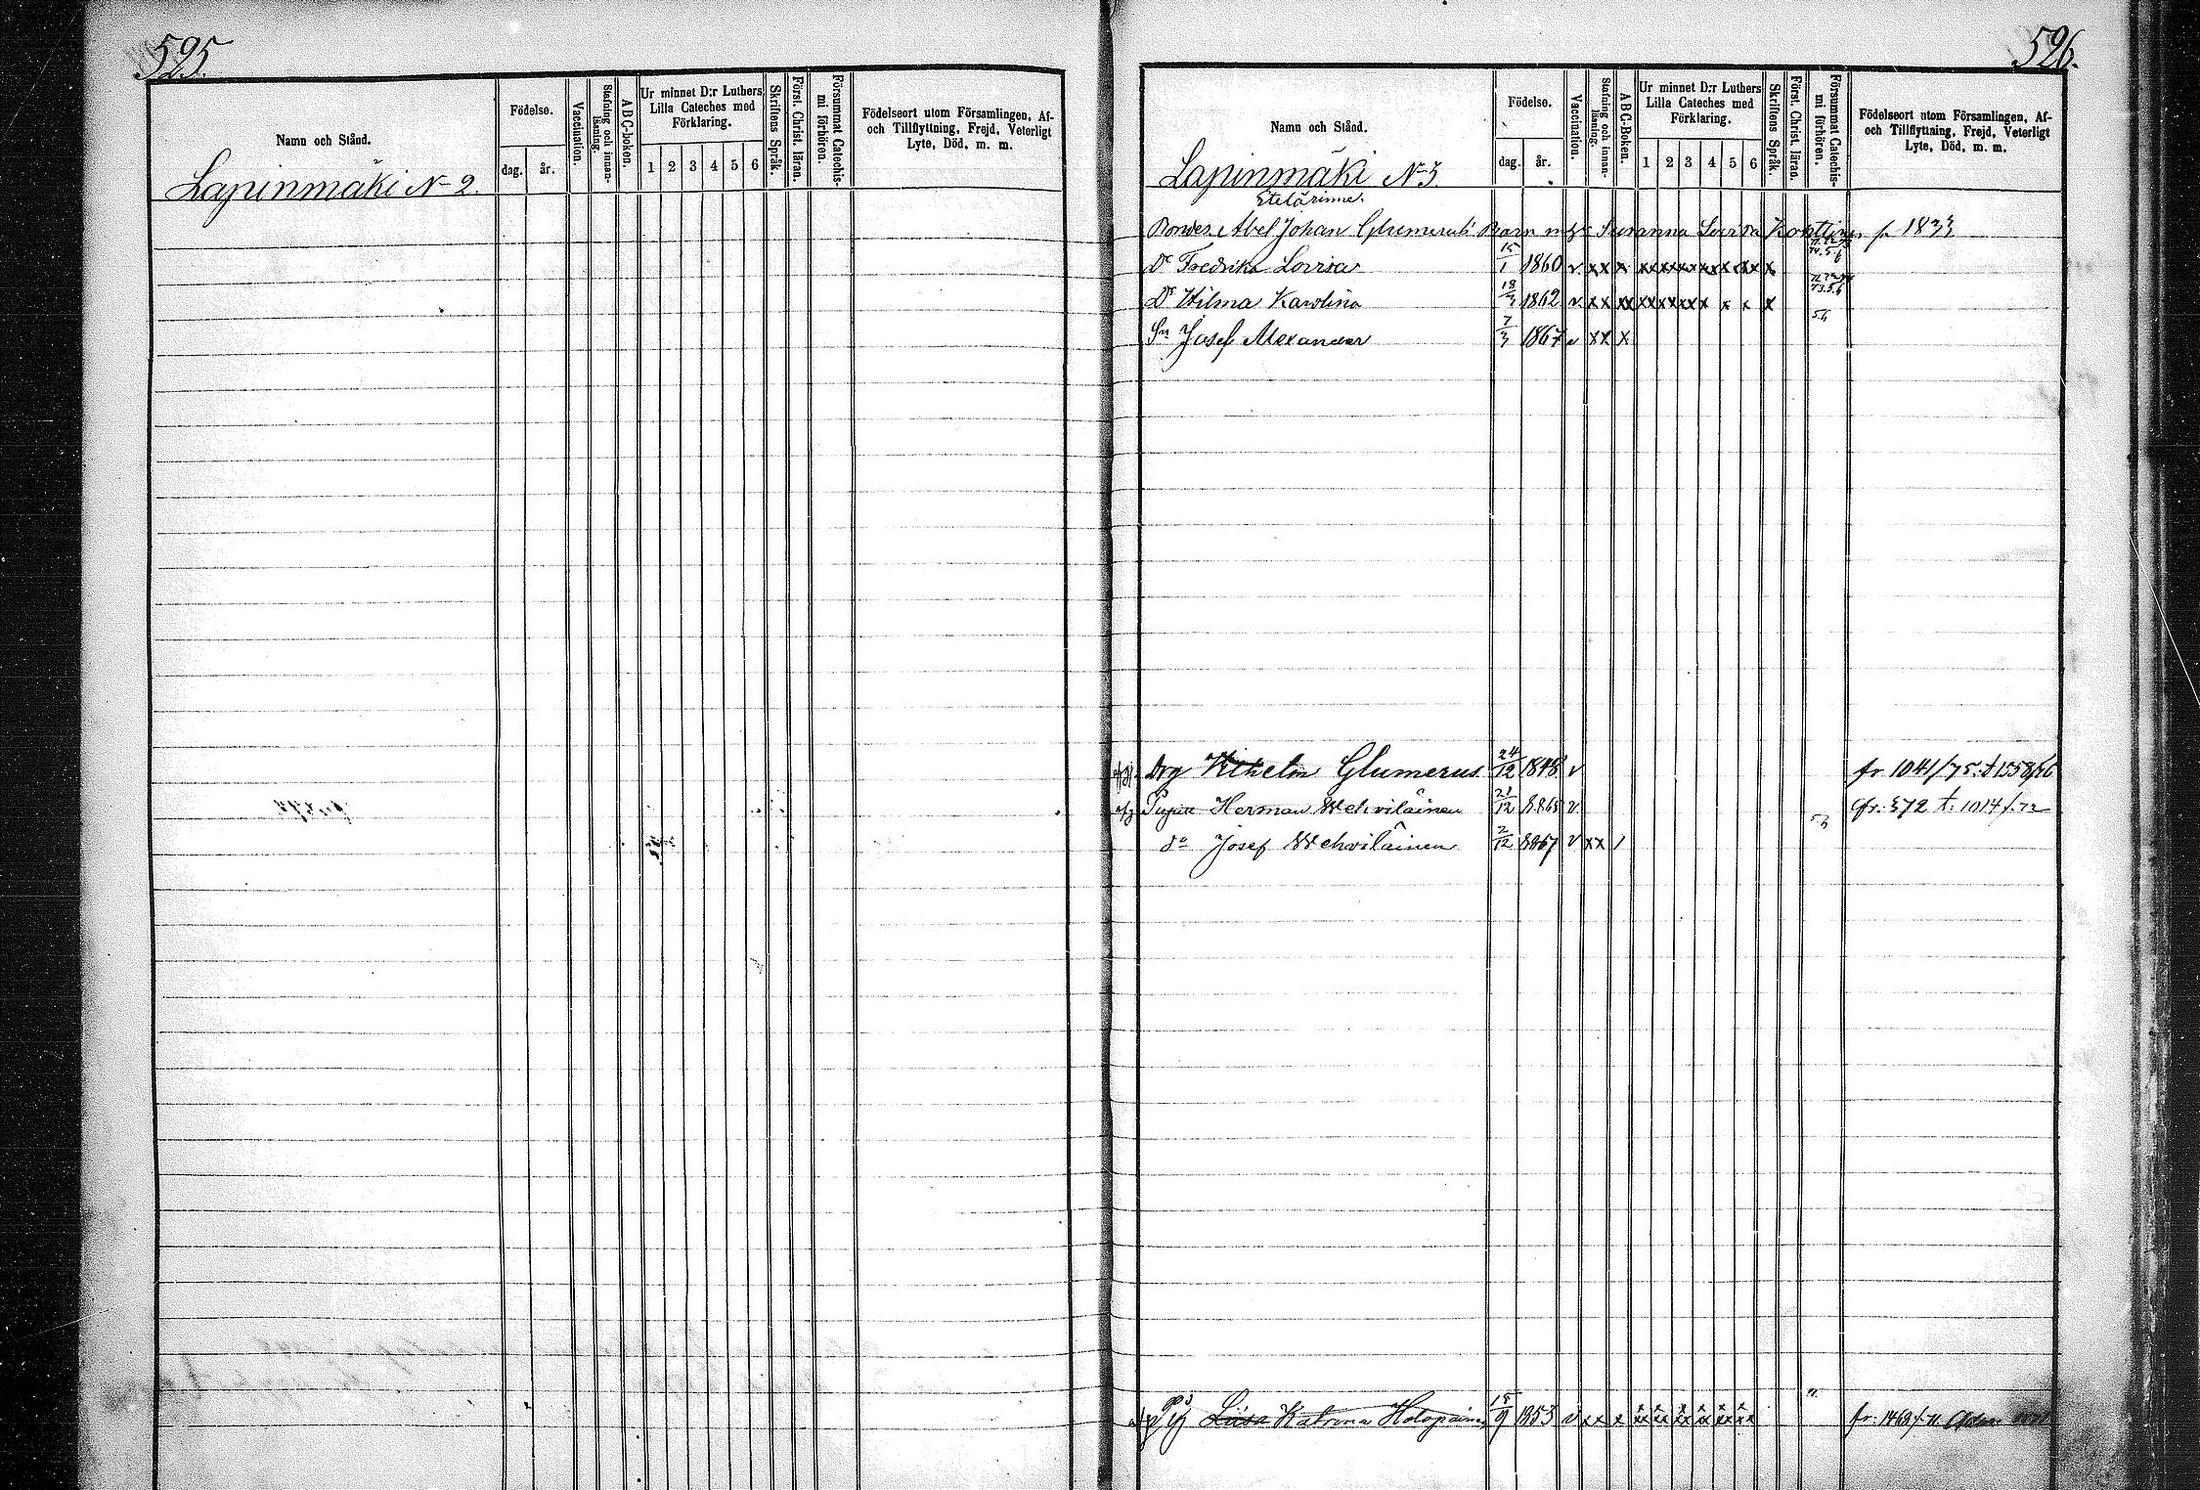 595.
Namn och Stånd.
Födelse.
dag. år.
Vaccination.
Stafning och innan-läsning.
ABC-boken.
Ur minnet D:r Luthers
Lilla Cateches med
Förklaring.
1 2 3 4 5 6
Skriftens Språk.
Först. Christ. läran.
Försummat Catechis-
mi förhören.
Födelseort utom Församlingen, Af-
och Tillflyttning, Frejd, Veterligt
Lyte, Död, m. m.
Lapinmäki N 2.
526.
Namn och Stånd.
Födelse.
dag. år.
Vaccination.
Stafning och innan-läsning.
ABC-Boken.
Ur minnet D:r Luthers
Lilla Cateches med
Förklaring.
1 2 3 4 5 6
Skriftens Språk.
Först. Christ. läran.
Försummat Catechis-
mi förhören.
Födelseort utom Församlingen, Af-
och Tillflyttning, Frejd, Veterligt
Lyte, Död, m. m.
Lapinmäki N 3.
Etelärinne.
Bondes Abel Johan Glumerus Barn Susanna Lovisa Konttinen 1833
Dr Fredrika Lovisa 15/1 1860 v x x x
Dr Hilma Karolina 18/3 1862 v x x
Sn Josef Alexander 7/3 1867 v x x x
Drg Wilhelm Glumerus 24/12 1848 v fr 1041/75.
Herman Wehviläinen 21/12 1865 v fr. 572 t. 1014/72
do Josef Wehviläinen 2/12 1867 v x x
Pig Liisa Katrina Holopainen 15/9 1853 v x x x